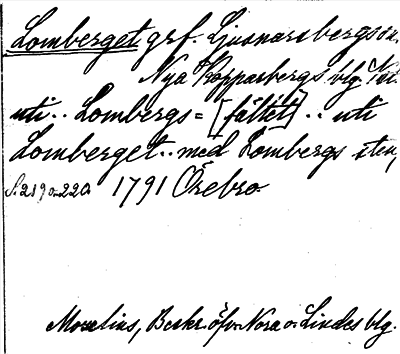 Lomberget grf. Ljusnarsbergs sn.
Nya Kopparbergs blg.
uti .. Lombergs = [fältet] .. uti
Lomberget .. med Lombergs sten,
S. 219 o. 220. 1791 Örebro
Morelius, Beskr. öfv. Nora o. Lindes blg.